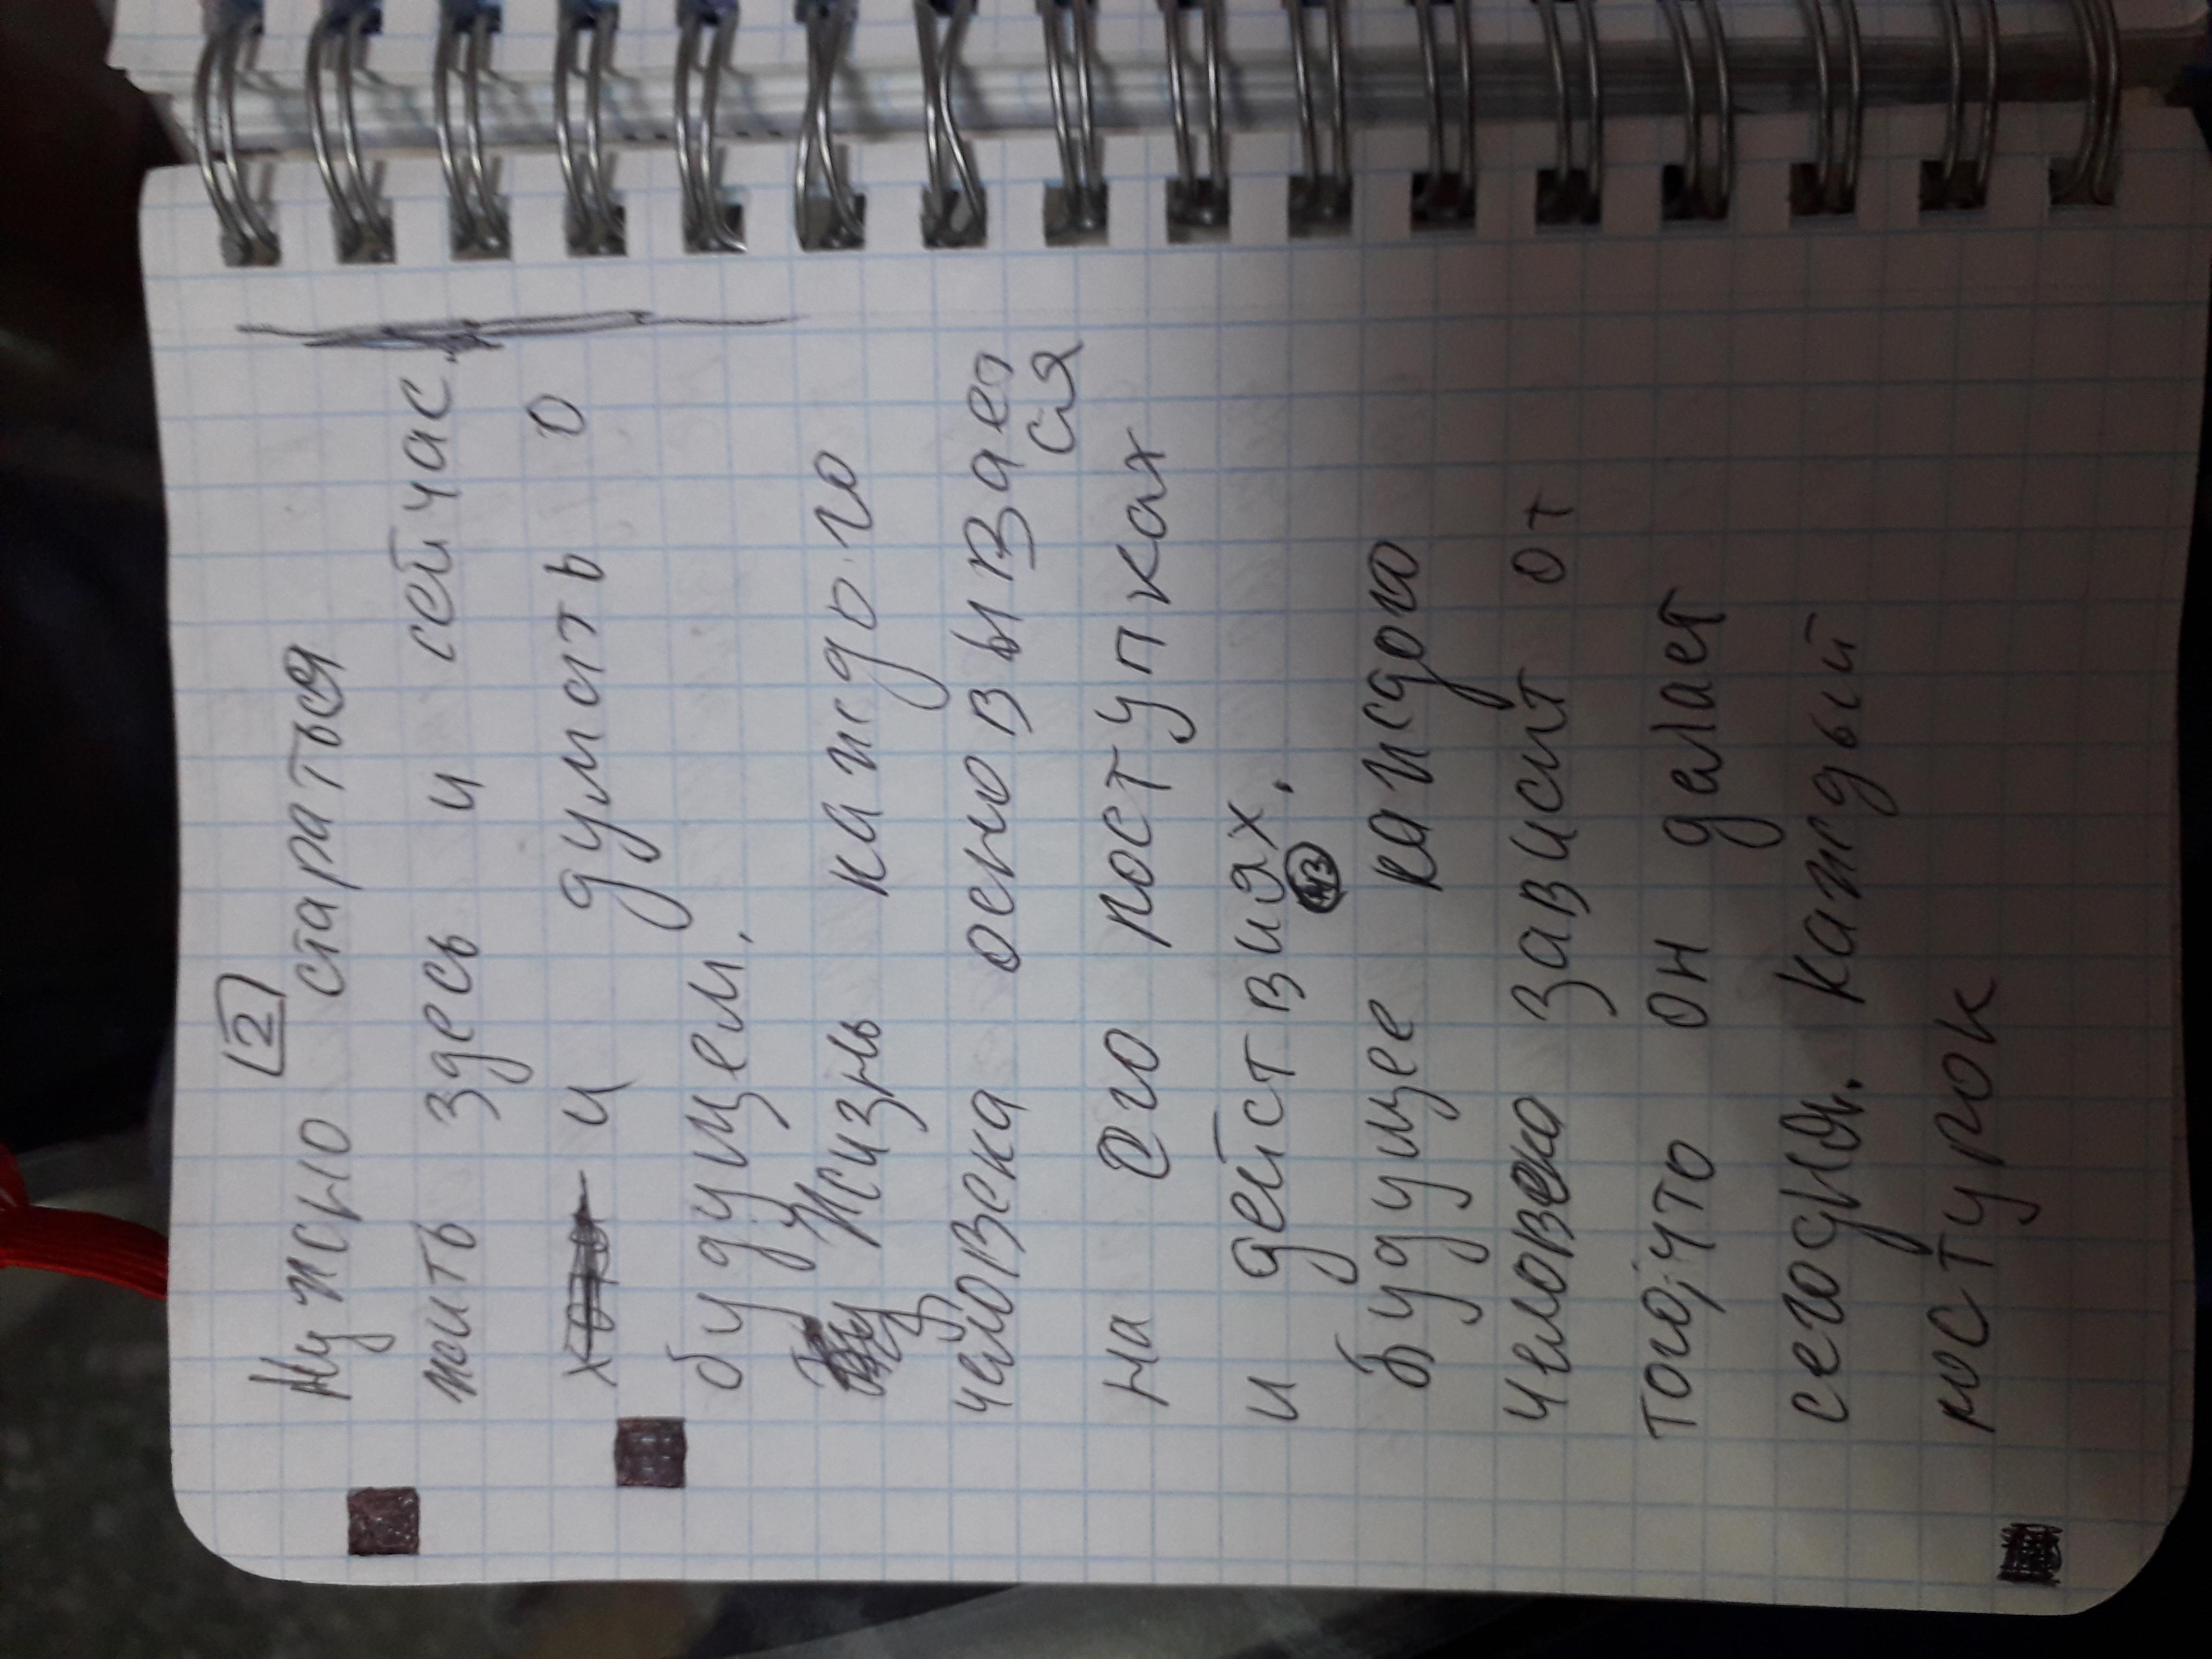 2
Нужно стараться
жить здесь и сейчас.
и думать о
будущем.
Жизнь каждого
человека основывает
ся
на его поступках
и действиях.
Будущее каждого
человека зависит от
того, что он делает
сегодня. Каждый
поступок